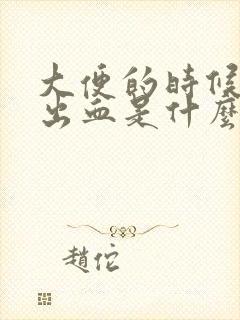 大便的時候
出血是什麼
趙佗